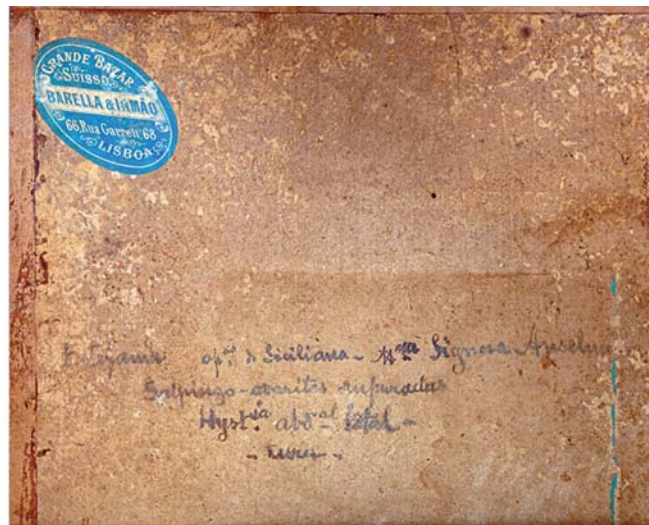 GRANDE BAZAR
SUISSO
BARELLA & IRMÃO
66, Rua Garrett 68
LISBOA
op.ᵈᵃ Siciliana - Signora Anselmi
Salpingo-ovarites supuradas
Hyst.ⁱᵃ abd.ᵃˡ total -